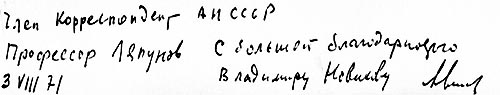 Член Корреспондент АН СССР
Профессор Ляпунов С большой благодарностью
3 VIII 71 Владимиру Новикову